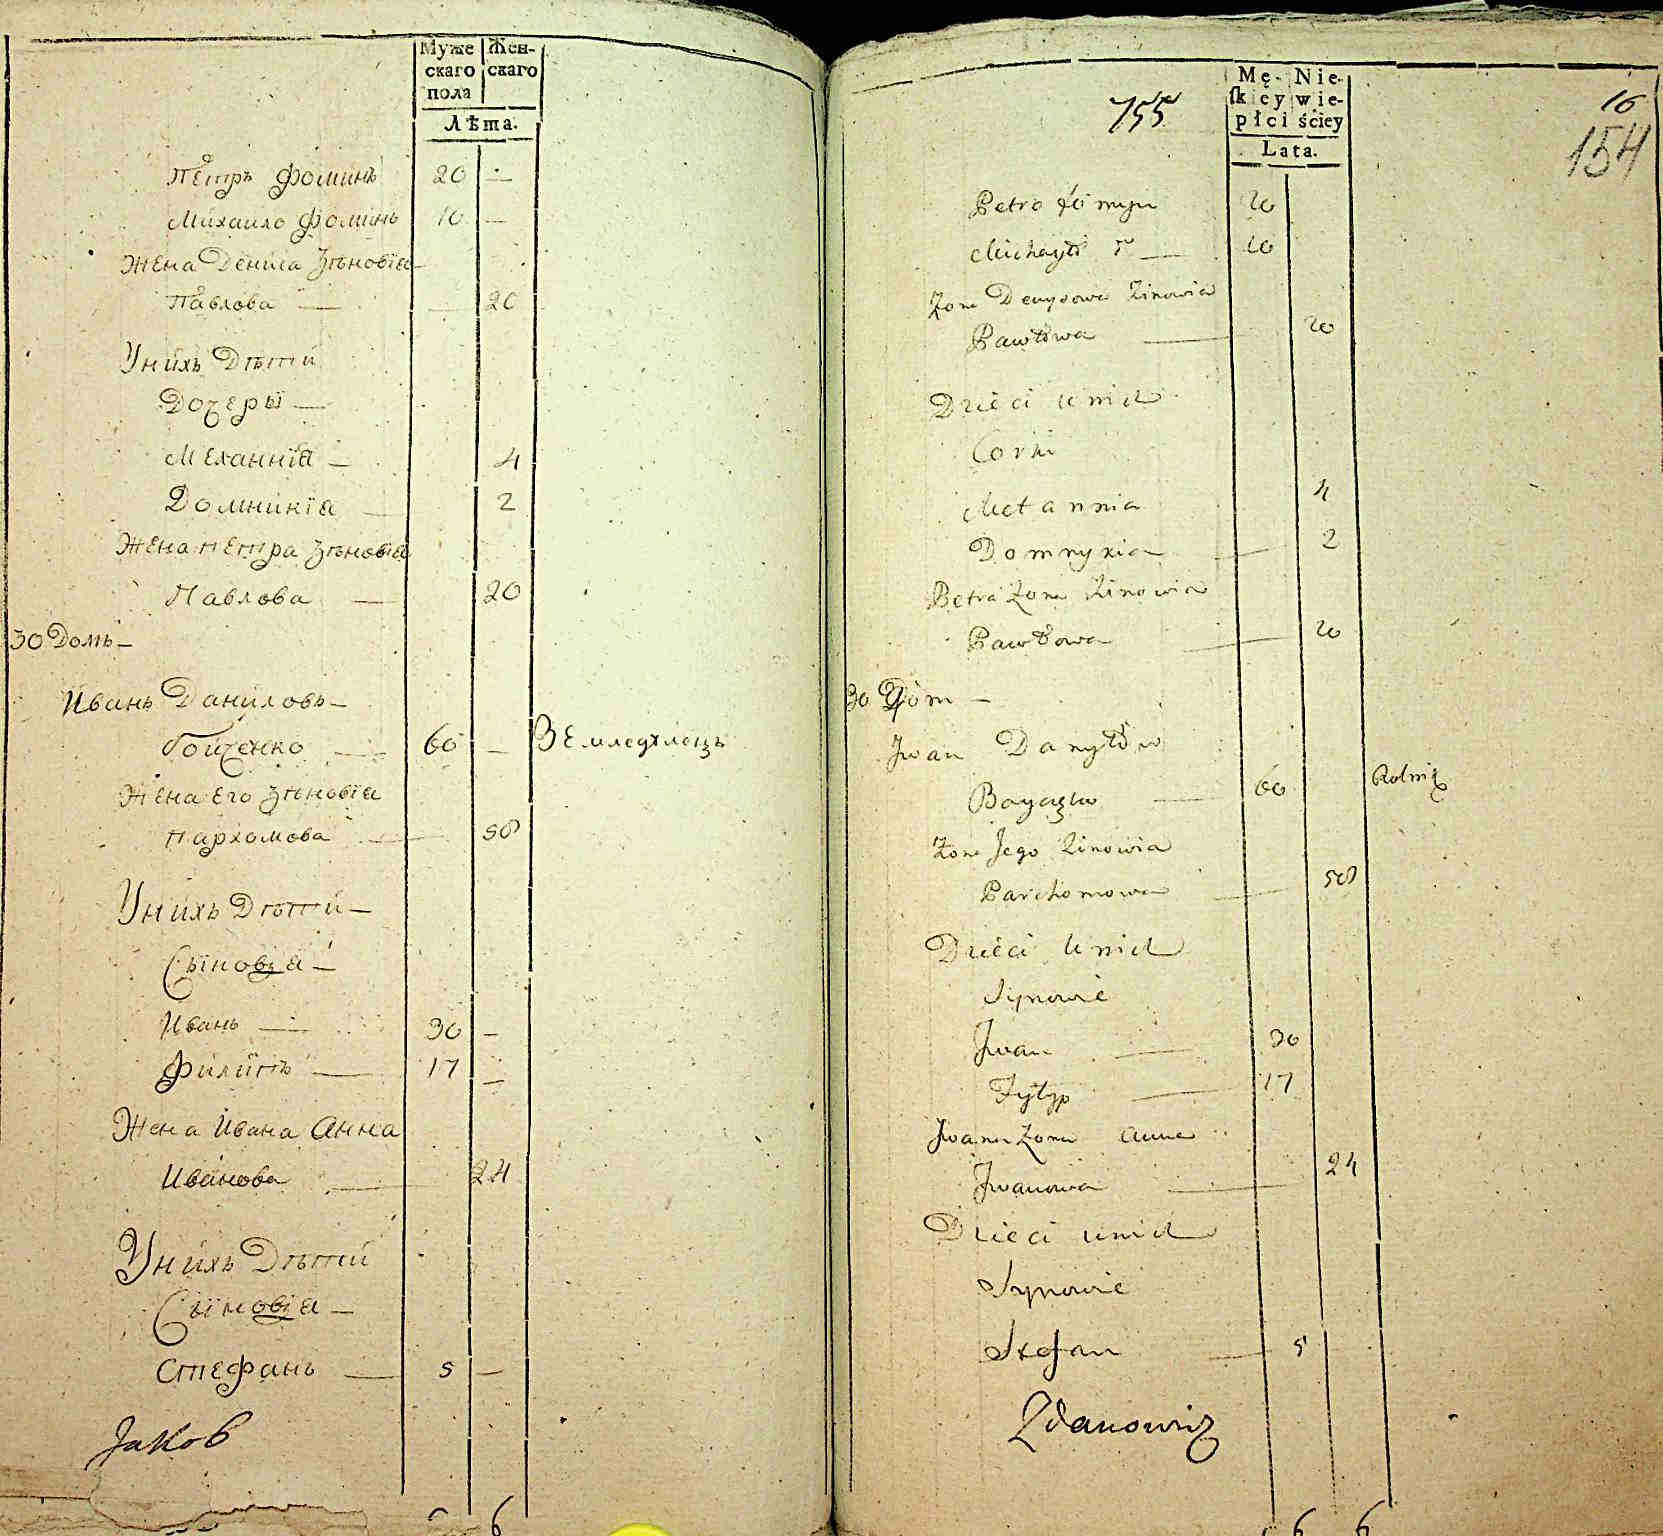 Муже Жен-
скаго скаго
пола
Лѣта.
Петръ Фоминъ 20 —
Михаило Фоминъ 10 —
Жена Дениса Зѣновїа —
Павлова — — 20
Унихъ Дѣтти
Дочеры —
Меланнїа — 4
Домникїа — 2
Жена петра Зѣновїа
Павлова — 20
30 Домъ —
Иванъ Даниловъ —
Гойченко — 60 — Земледѣлецъ
Жена Его Зѣновїа
Пархомова — 50
Унихъ Дѣтти —
Сыновїа —
Иванъ — 30 —
Филипъ — 17 —
Жена Ивана Анна
Иванова — 24
Унихъ Дѣтти
Сыновїа —
Стефанъ — 5 —
Яковъ
6
Mę- Nie-
ſkiey wie-
płci ściey
Lata.
755
16
154
Petro Fomyn 20
Michayło — 10
Zona Denysowa Zinowia
Pawłowa — 20
Dzieci unich
Corki
Metannia 4
Domnykia — 2
Petra Zona Zinowia
Pawłowa — 20
30 Dom —
Jwan Danyłów
Boyczko — 60 Rolnik
Zona Jego Zinowia
Parchomowa — 50
Dzieci Unich
Synowie
Jwan — 30
Fylyp — 17
Jwana Zona Anna
Jwanowa — 24
Dzieci unich
Synowie
Stefan — 5
Zdanowicz
6 6